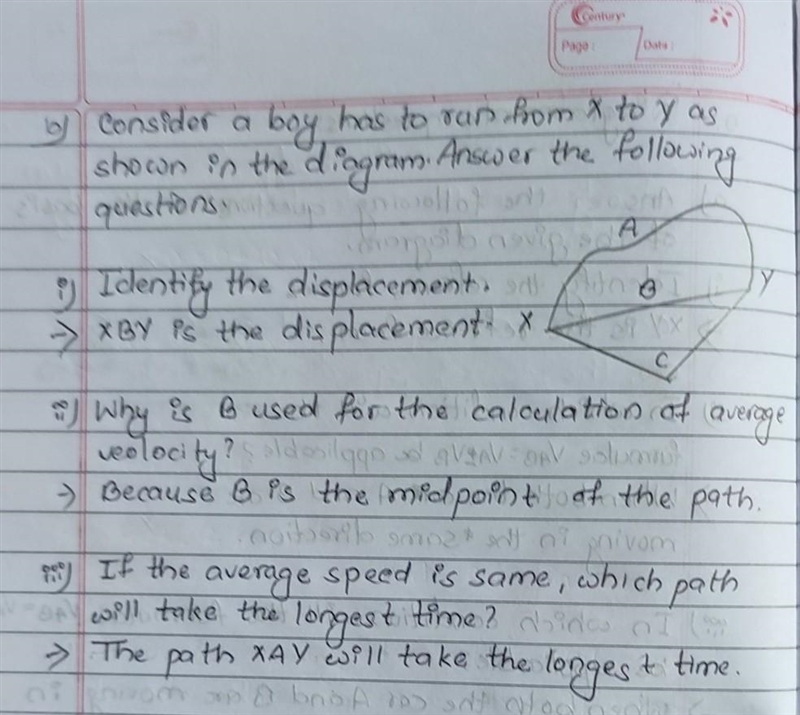 Century
Page :
Date :
b) Consider a boy has to run from X to Y as
shown in the diagram. Answer the following
questions.
A
i) Identify the displacement.
B
Y
→ XBY is the displacement.
X
C
ii) Why is B used for the calculation of average
veolocity?
→ Because B is the midpoint of the path.
iii) If the average speed is same, which path
will take the longest time?
→ The path XAY will take the longest time.